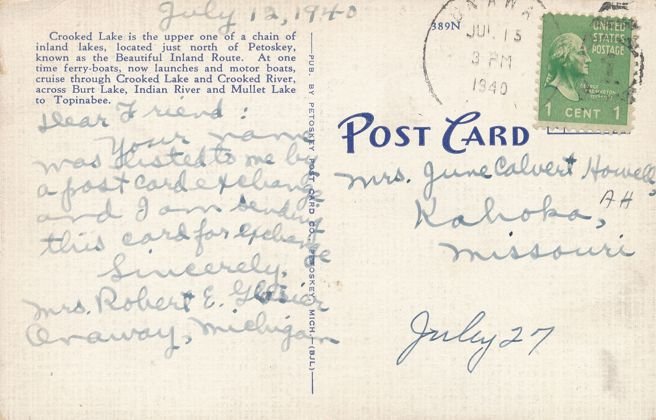 July 12, 1940
Crooked Lake is the upper one of a chain of
inland lakes, located just north of Petoskey,
known as the Beautiful Inland Route. At one
time ferry-boats, now launches and motor boats,
cruise through Crooked Lake and Crooked River,
across Burt Lake, Indian River and Mullet Lake
to Topinabee.
Dear Friend:
Your name
was listed to me by
a post card exchange
and I am sending
this card for exchange
Sincerely,
Mrs. Robert E.
Onaway, Michigan
PUB. BY PETOSKEY POST CARD CO., PETOSKEY, MICH.—(BJL)
389N
ONAWA
JUL 15
3 PM
1940
UNITED
STATES
POSTAGE
GEORGE
WASHINGTON
1 CENT 1
POST CARD
Mrs. June Calvert Howell,
AH
Kahoka,
Missouri
July 27